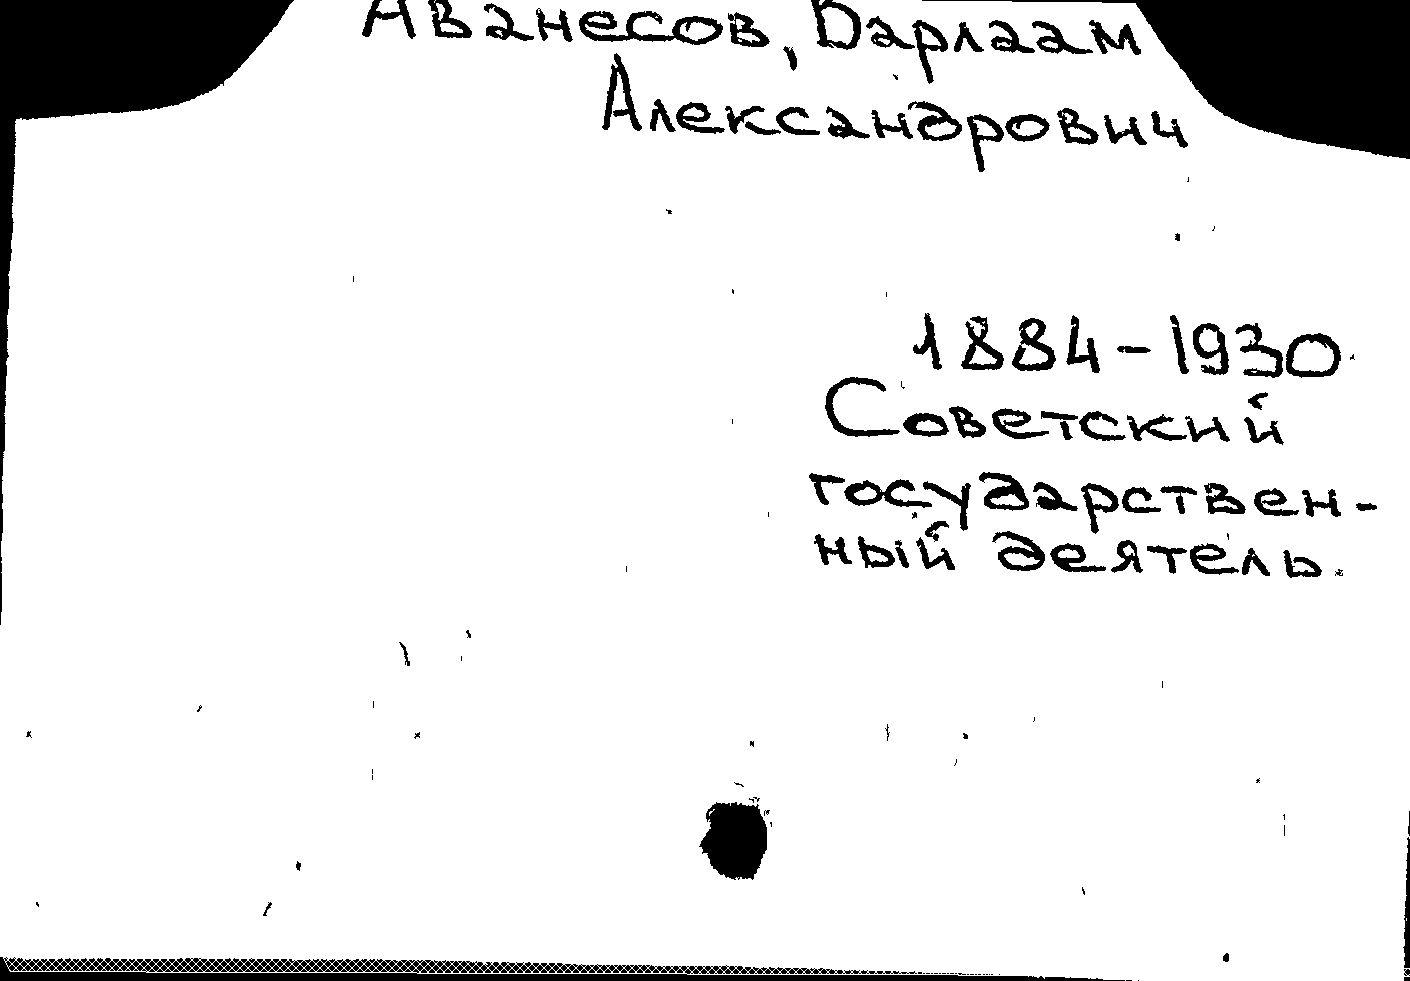 Аванесов, Варлаам
Александрович
1884-1930
Советский
государствен-
ный деятель.